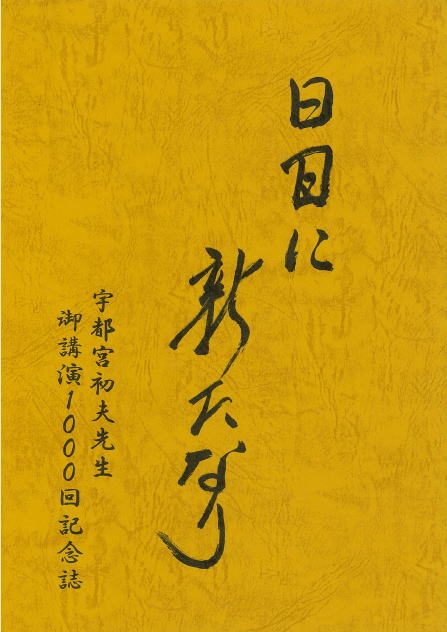 日日に
新たなり
宇都宮初夫先生
御講演1000回記念誌